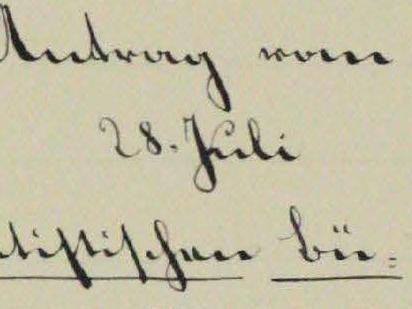 Antrag vom
28. Juli
tistischen Bü=